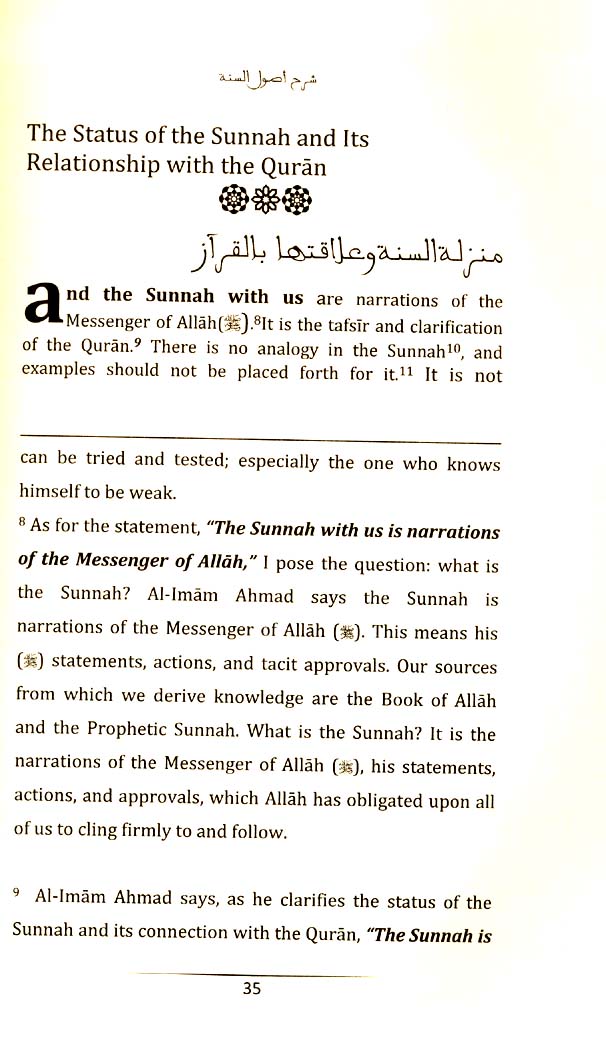 شرح أصول السنة
The Status of the Sunnah and Its
Relationship with the Qurān
منزلة السنة وعلاقتها بالقرآن
and the Sunnah with us are narrations of the
Messenger of Allāh(ﷺ).⁸It is the tafsīr and clarification
of the Qurān.⁹ There is no analogy in the Sunnah¹⁰, and
examples should not be placed forth for it.¹¹ It is not
can be tried and tested; especially the one who knows
himself to be weak.
⁸ As for the statement, “The Sunnah with us is narrations
of the Messenger of Allāh,” I pose the question: what is
the Sunnah? Al-Imām Ahmad says the Sunnah is
narrations of the Messenger of Allāh (ﷺ). This means his
(ﷺ) statements, actions, and tacit approvals. Our sources
from which we derive knowledge are the Book of Allāh
and the Prophetic Sunnah. What is the Sunnah? It is the
narrations of the Messenger of Allāh (ﷺ), his statements,
actions, and approvals, which Allāh has obligated upon all
of us to cling firmly to and follow.
⁹ Al-Imām Ahmad says, as he clarifies the status of the
Sunnah and its connection with the Qurān, “The Sunnah is
35